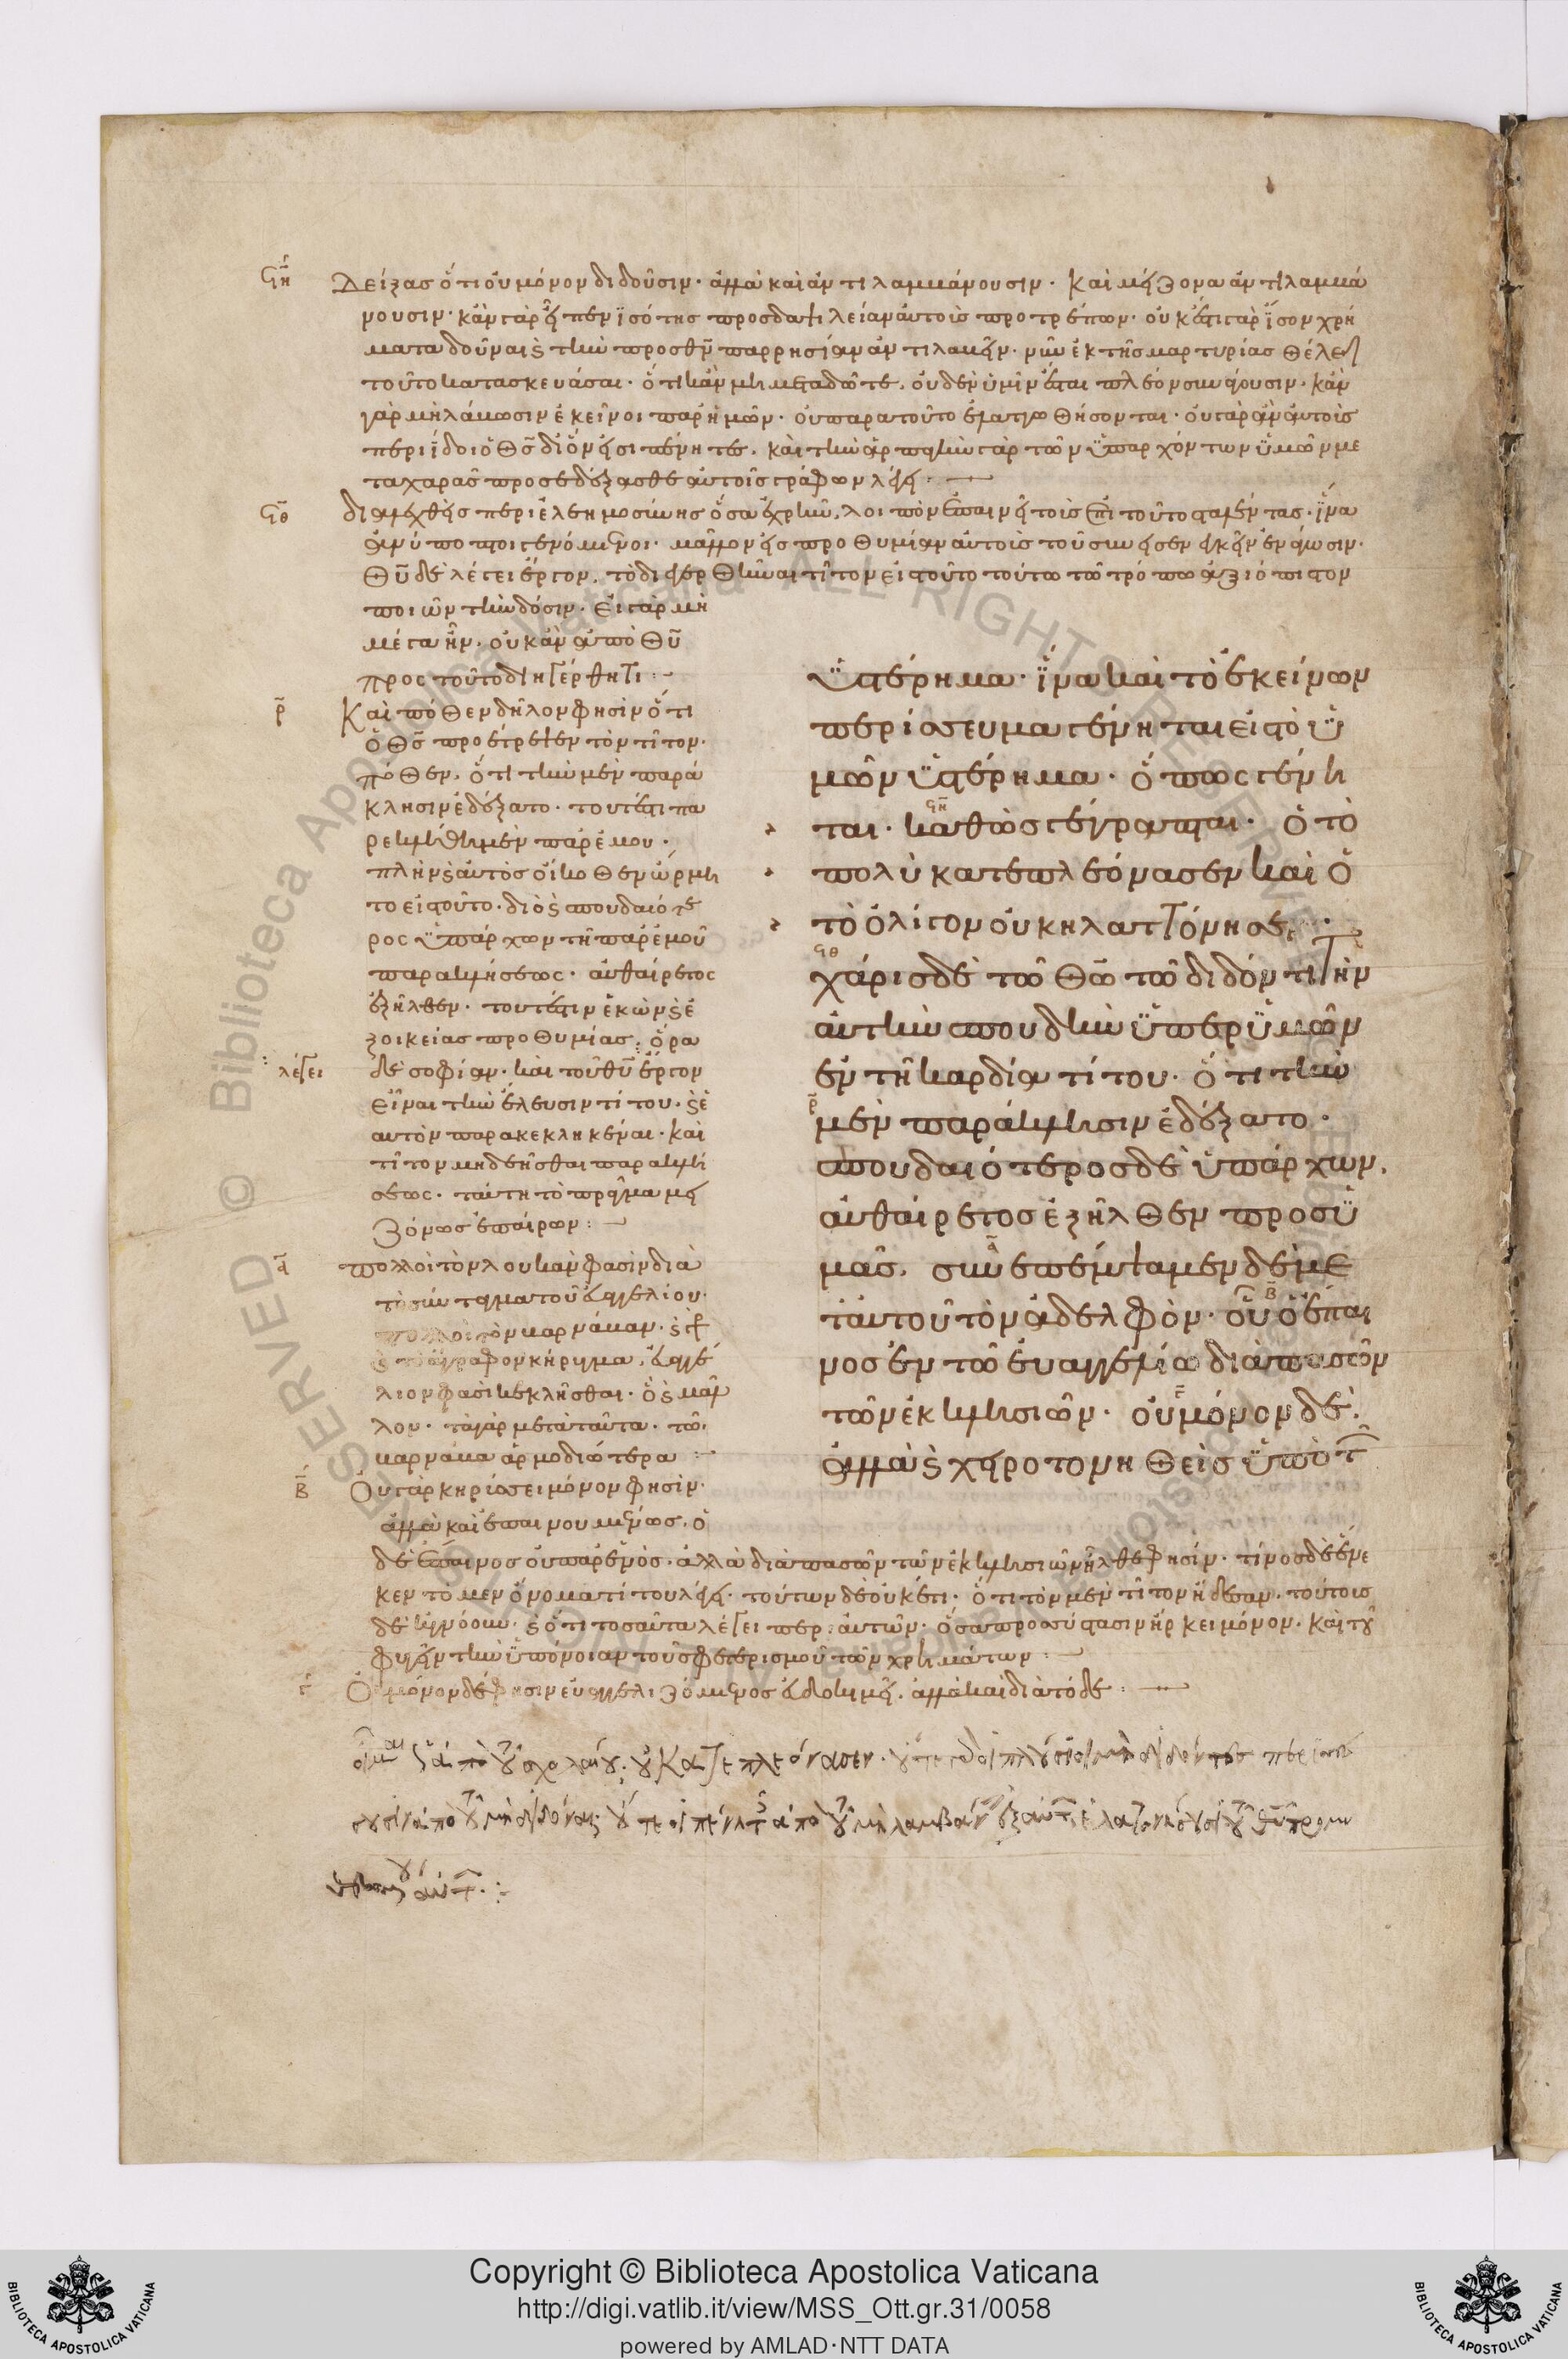 ϛη Δείξας ὅτι οὐ μόνον διδοῦσιν· ἀλλὰ καὶ ἀντιλαμβάνουσιν· καὶ μείζονα ἀντιλαμβά
νουσιν· κἂν γὰρ εἶπεν ἰσότης πρὸς δαψιλείαν αὐτοῖς προτρέπων· οὐκ ἔστι γὰρ ἴσον χρή
ματα δοῦναι καὶ τὴν πρὸς θν παρρησίαν ἀντιλαβεῖν· νῦν ἐκ τῆς μαρτυρίας θέλει
τοῦτο κατασκευάσαι· ὅτι κἂν μὴ μεταδῶτε, οὐδὲν ὑμῖν ἔσται πλέον συνάγουσιν· κἂν
γὰρ μὴ λάβωσιν ἐκεῖνοι παρ' ἡμῶν· οὐ παρὰ τοῦτο ἐλαττωθήσονται· οὐ γὰρ ἂν αὐτοὺς
περιίδοι ὁ θς δι' ὅν εἰσι πένητες. καὶ τὴν ἁρπαγὴν γὰρ τῶν ὑπαρχόντων ὑμῶν με
τὰ χαρᾶς προσεδέξασθε αὐτοῖς γράφων λέγει :
ϛθ διαλεχθεὶς περὶ ἐλεημοσύνης ὅσα ἐχρῆν, λοιπὸν ἐπαινεῖ τοὺς ἐπὶ τοῦτο σταλέντας· ἵνα
ἀνύποπτοι γενόμενοι· μᾶλλον εἰς προθυμίαν αὐτοὺς τοῦ συνεισενεγκεῖν ἐνάγωσιν·
θυ δὲ λέγει ἔργον, τὸ διεγερθῆναι τίτον εἰς τοῦτο τούτω τῶ τρόπω ἀξιόπιστον
ποιῶν τὴν δόσιν· εἰ γὰρ μὴ
μέγα ἦν, οὐκ ἂν ἀπὸ θυ
πρὸς τοῦτο διηγέρθη τι :
ρ Καὶ πόθεν δῆλον φησὶν ὅτι
ὁ θς προέτρεψεν τὸν τίτον·
πόθεν, ὅτι τὴν μὲν παρά
κλησιν ἐδέξατο· τουτέστι πα
ρεκλήθη μὲν παρ' ἐμου·
πλὴν καὶ αὐτὸς οἴκοθεν ὥρμη
το εἰς τοῦτο· διὸ καὶ σπουδαιότε
ρος ὑπάρχων τῆς παρ' ἐμοῦ
παρακλήσεως· αὐθαίρετος
ἐξῆλθεν· τουτέστιν ἑκὼν καὶ ἐ
ξ οἰκείας προθυμίας: ὅρα
λέγει δὲ σοφίαν· καὶ τοῦ θυ ἔργον
εἶναι τὴν ἔλευσιν τίτου· καὶ ἑ
αυτὸν παρακεκληκέναι· καὶ
τίτον μὴ δεῆσθαι παρακλή
σεως· ταύτη τὸ πρᾶγμα μει
ζόνως ἐπαίρων :
α πολλοὶ τὸν λουκᾶν φασὶν διὰ
τὸ σύνταγμα τοῦ εὐαγγελίου·
πολλοὶ τὸν βαρνάβαν·
τὸ ἄγραφον κήρυγμα, εὐαγγέ
λιον φασὶ κεκλῆσθαι· ὃ καὶ μᾶλ
λον· τὰ γὰρ μετὰ ταῦτα· τῶ
βαρνάβα ἁρμοδιώτερα :
β Οὐ γὰρ κηρύσσει μόνον φησὶν·
ἀλλὰ καὶ ἐπαινουμένως, ὁ
δὲ ἔπαινος οὐ παρ' ἑνὸς· ἀλλὰ διὰ πασῶν τῶν ἐκκλησιῶν ἦλθε φησίν· τίνος δὲ ἕνε
κεν τὸ μὲν ὄνομα τίτου λέγει· τούτων δὲ οὐκέτι· ὅτι τὸν μὲν τίτον ᾔδεσαν. τούτους
δὲ ἠγνόουν· καὶ ὅτι τοσαῦτα λέγει περὶ αὐτῶν· ὅσα προσύστασιν ἤρκει μόνον. καὶ τοῦ
φυγεῖν τὴν ὑπόνοιαν τοῦ σφετερισμοῦ τῶν χρημάτων :
γ Οὐ μόνον δὲ φησιν εὐαγγελιζόμενος εὐδοκιμεῖ. ἀλλὰ καὶ διὰ τόδε :
ὑστέρημα· ἵνα καὶ τὸ ἐκείνων
περίσσευμα γένηται εἰς τὸ ὑ
μῶν ὑστέρημα· ὅπως γένη
ται· καθὼς γέγραπται· ὁ τὸ
πολὺ κατεπλεόνασεν καὶ ὁ
τὸ ὀλίγον οὐκ ηλαττόνησε
χάρις δὲ τῶ θω τῶ διδόντι τὴν
αὐτὴν σπουδὴν ὑπὲρ ὑμῶν
ἐν τῆ καρδία τίτου· ὅτι τὴν
μὲν παράκλησιν ἐδέξατο·
σπουδαιότερος δὲ ὑπάρχων,
αὐθαίρετος ἐξῆλθεν πρὸς ὑ
μᾶς. συνεπέμψαμεν δὲ με
τ' αὐτοῦ τὸν ἀδελφὸν· οὗ ὁ ἔπαι
νος ἐν τῶ εὐαγγελίω διὰ πασῶν
τῶν ἐκκλησιῶν· οὐ μόνον δὲ·
ἀλλὰ καὶ χειροτονηθεὶς ὑπὸ τ
Copyright © Biblioteca Apostolica Vaticana
http://digi.vatlib.it/view/MSS_Ott.gr.31/0058
powered by AMLAD·NTT DATA